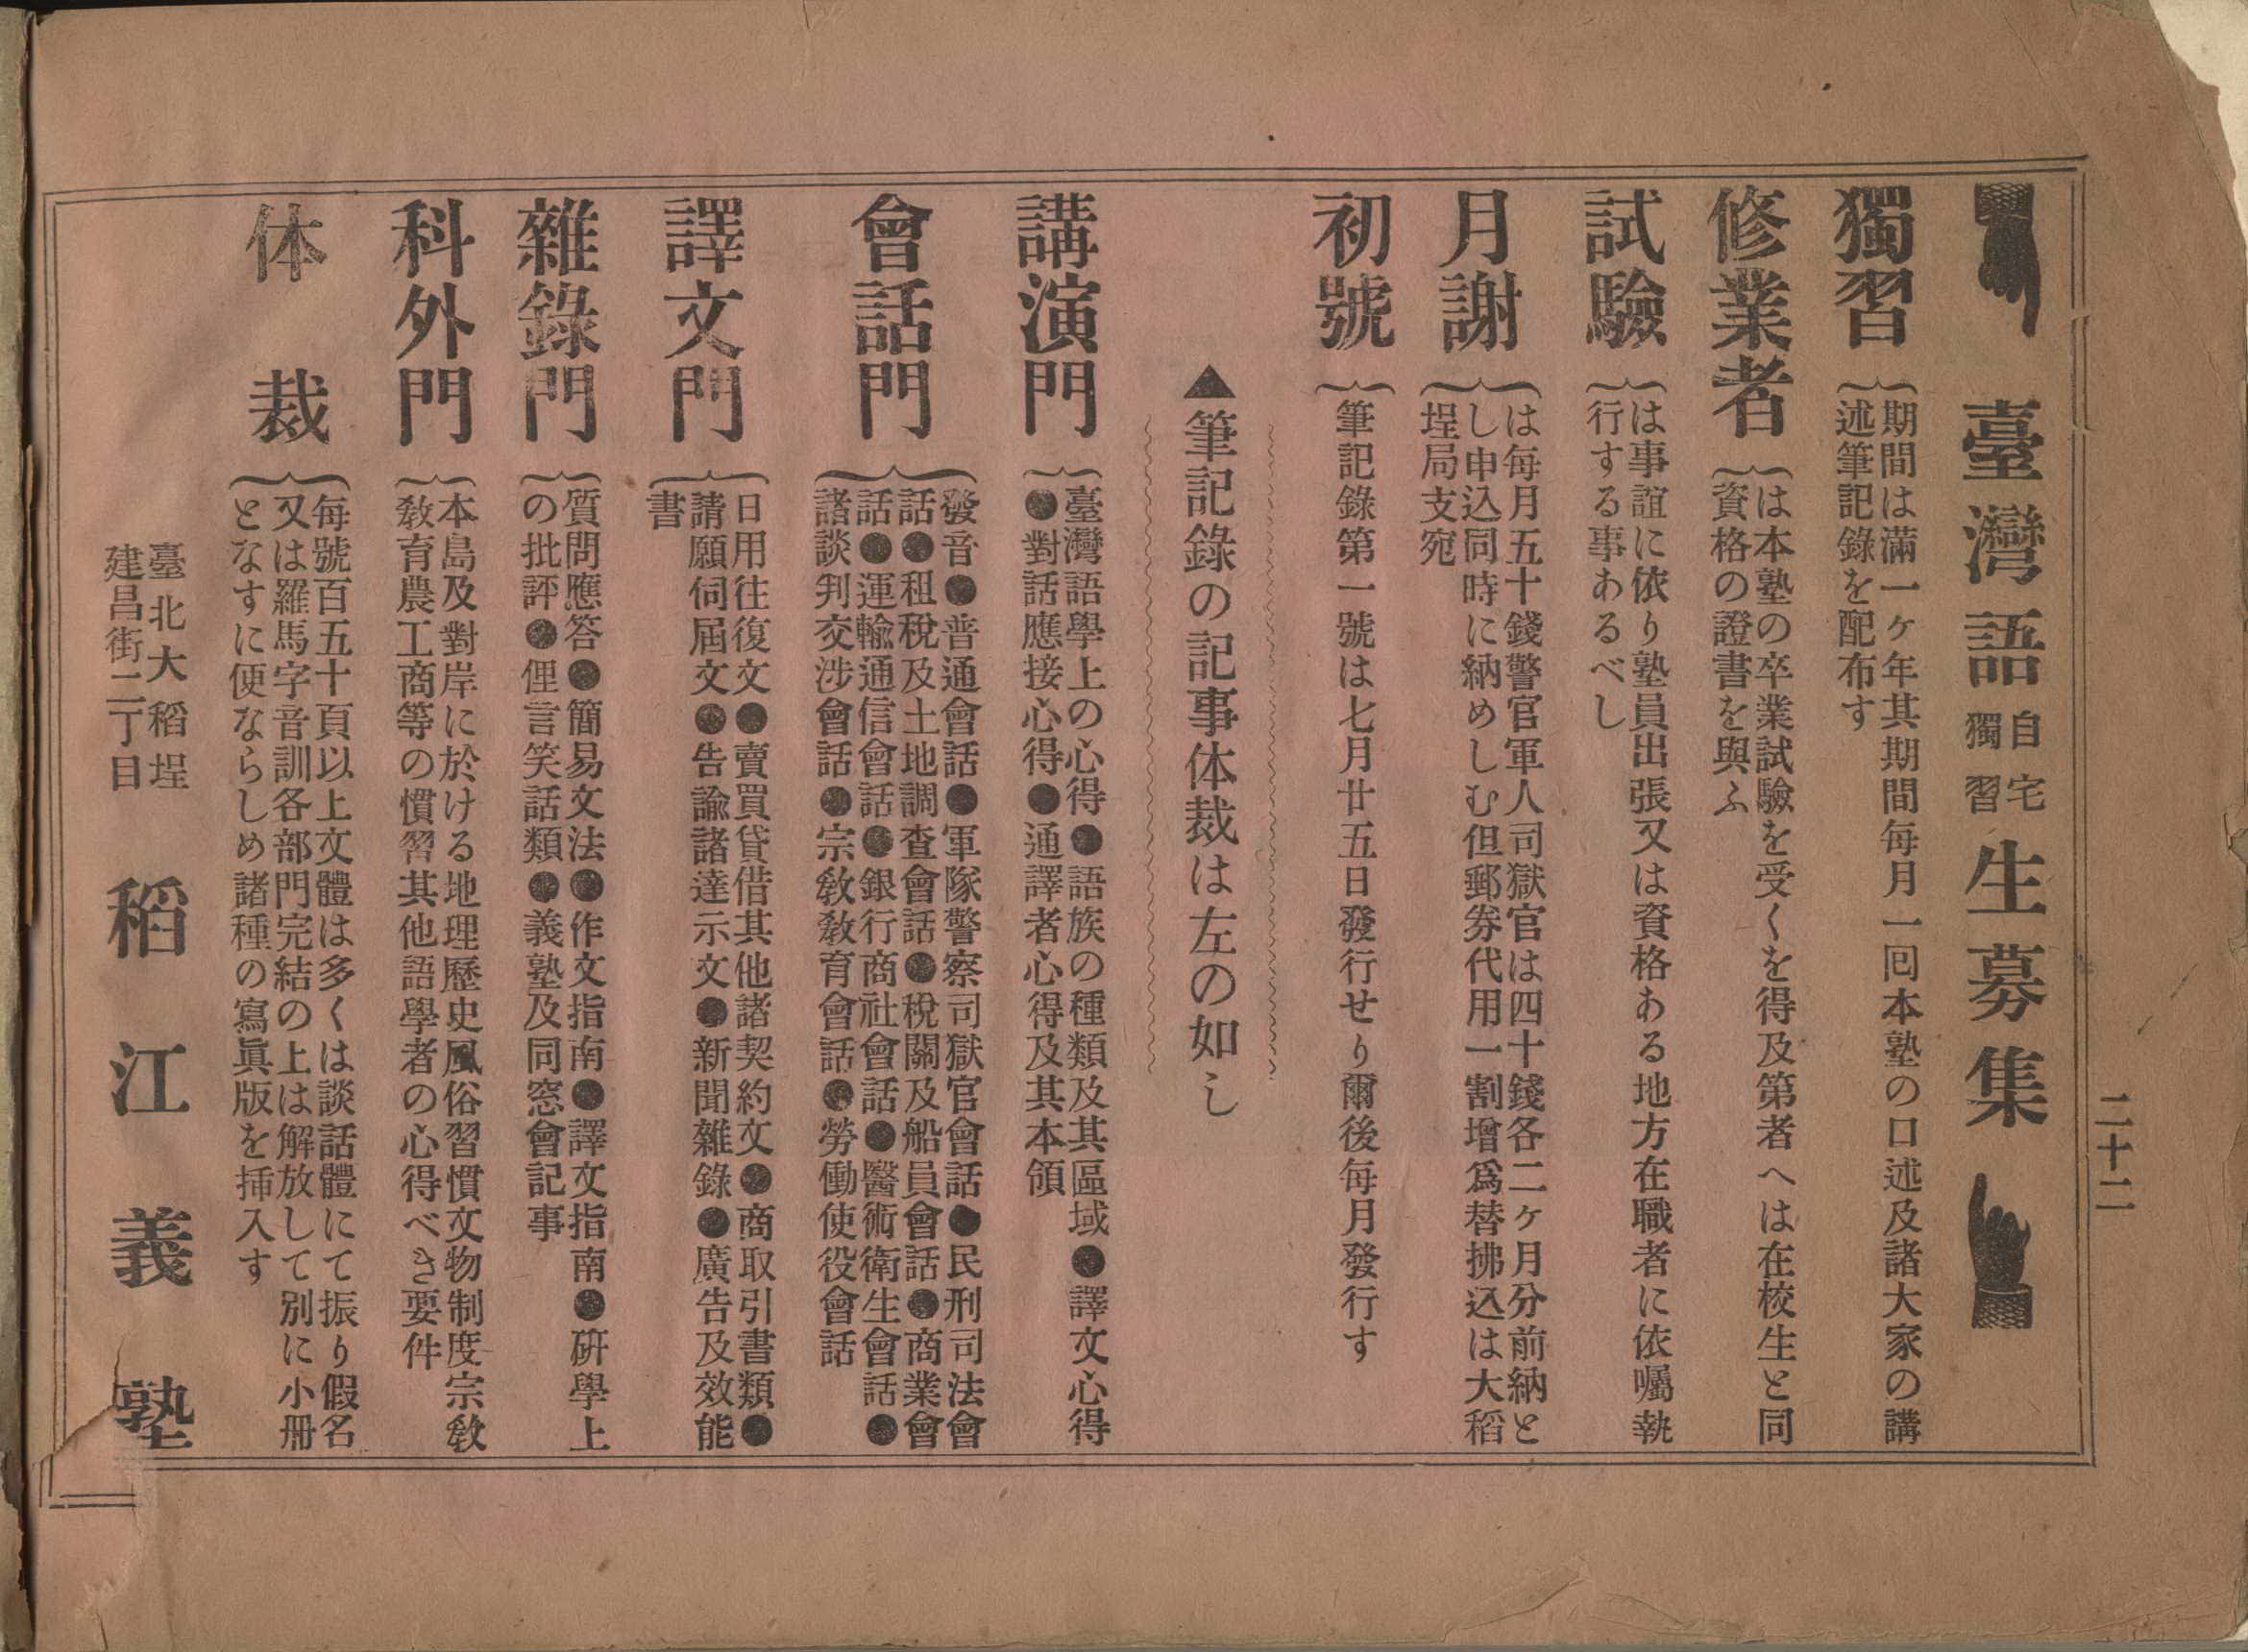 二十二
臺灣語自宅獨習生募集
獨習
期間は滿一ヶ年其期間每月一回本塾の口述及諸大家の講
述筆記錄を配布す
修業者
は本塾の卒業試驗を受くを得及第者へは在校生と同
資格の證書を與ふ
試驗
は事誼に依り塾員出張又は資格ある地方在職者に依囑執
行する事あるべし
月謝
は每月五十錢警官軍人司獄官は四十錢各二ヶ月分前納と
し申込同時に納めしむ但郵券代用一割增爲替拂込は大稻
埕局支宛
初號
筆記錄第一號は七月廿五日發行せり爾後每月發行す
▲筆記錄の記事体裁は左の如し
講演門
臺灣語學上の心得●語族の種類及其區域●譯文心得
●對話應接心得●通譯者心得及其本領
會話門
發音●普通會話●軍隊警察司獄官會話●民刑司法會
話●租稅及土地調查會話●稅關及船員會話●商業會
話●運輸通信會話●銀行商社會話●醫術衛生會話●
諸談判交涉會話●宗敎敎育會話●勞働使役會話
譯文門
日用往復文●賣買貸借其他諸契約文●商取引書類●
請願伺屆文●告諭諸達示文●新聞雜錄●廣告及效能
書
雜錄門
質問應答●簡易文法●作文指南●譯文指南●硏學上
の批評●俚言笑話類●義塾及同窓會記事
科外門
本島及對岸に於ける地理歷史風俗習慣文物制度宗敎
敎育農工商等の慣習其他語學者の心得べき要件
体裁
每號百五十頁以上文體は多くは談話體にて振り假名
又は羅馬字音訓各部門完結の上は解放して別に小冊
となすに便ならしめ諸種の寫眞版を揷入す
臺北大稻埕
建昌街二丁目
稻江義塾